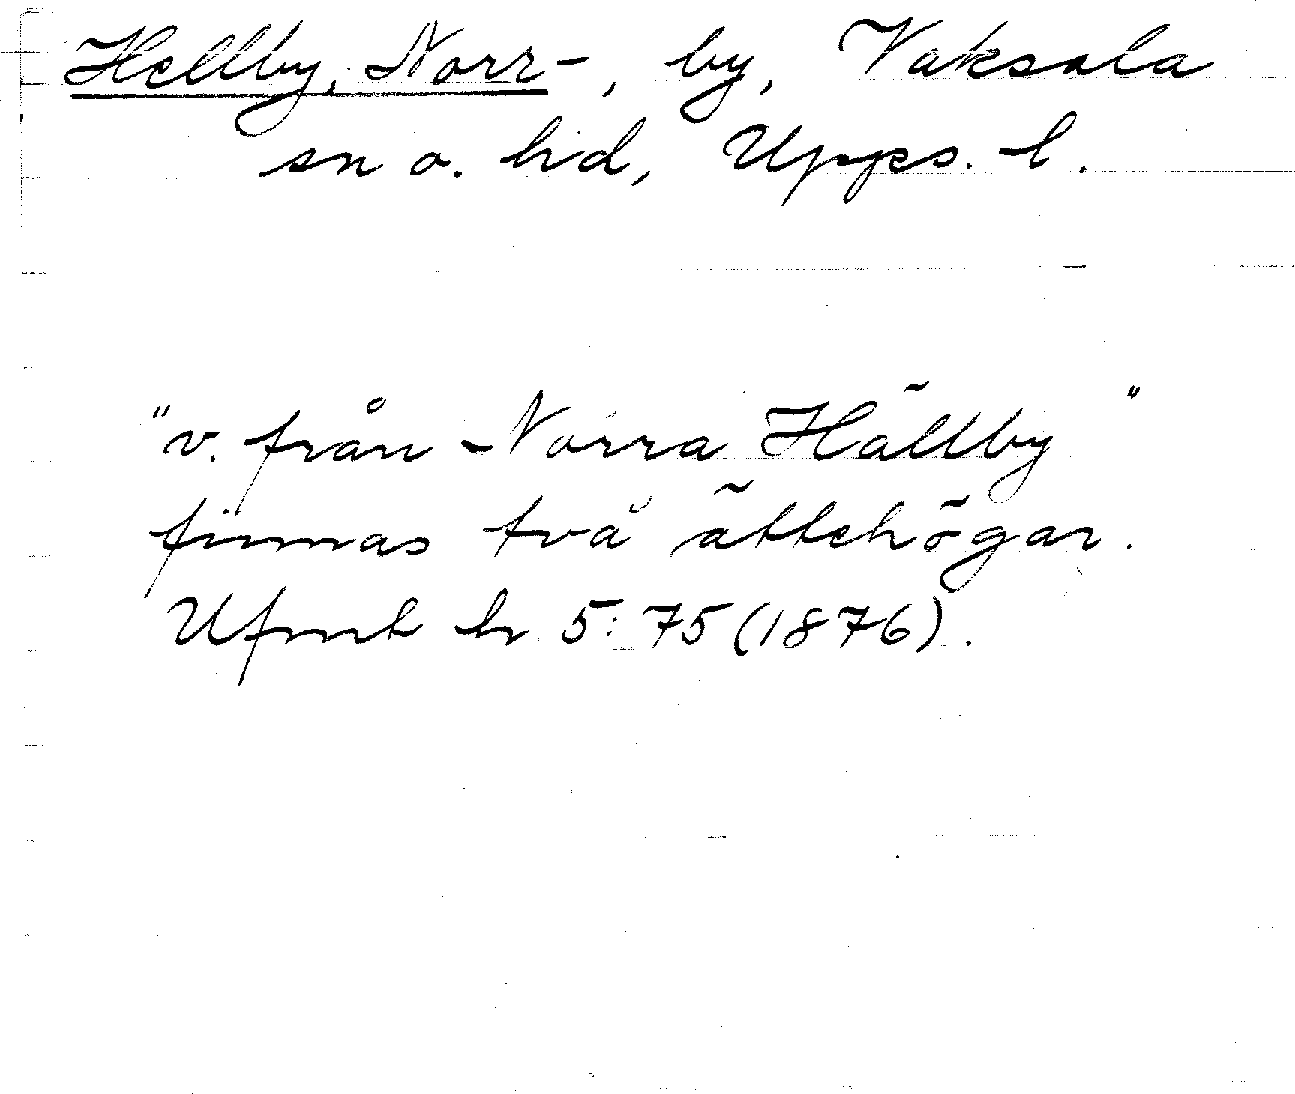 Hellby, Norr-, by, Vaksala
sn o. hd, Upps. l.
"v. från Norra Hällby"
finnas två ättehögar.
Ufmt h 5: 75 (1876).